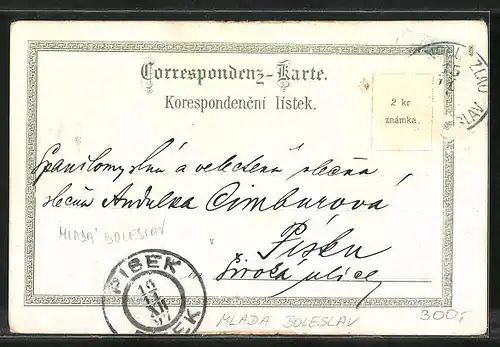 Correspondenz-Karte.
Korespondenční lístek.
2 kr
známka.
Spanilomyslná a velectěná slečna
slečna Andulka Cimburová
Písku
Široká ulice
MLADÁ BOLESLAV
PISEK
19
XII
97
MLADA BOLESLAV
300,-